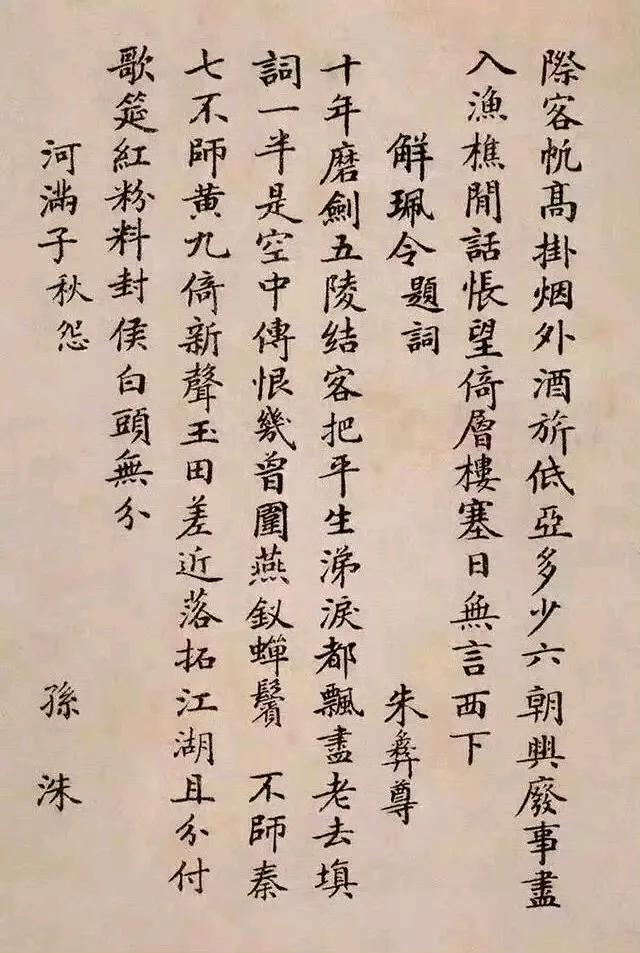 際客帆高掛烟外酒旂低亞多少六朝興廢事盡
入漁樵閒話悵望倚層樓塞日無言西下
解珮令題詞 朱彝尊
十年磨劍五陵結客把平生涕淚都飄盡老去填
詞一半是空中傳恨幾曾圍燕釵蟬鬢 不師秦
七不師黄九倚新聲玉田差近落拓江湖且分付
歌筵紅粉料封侯白頭無分
河滿子秋怨 孫洙